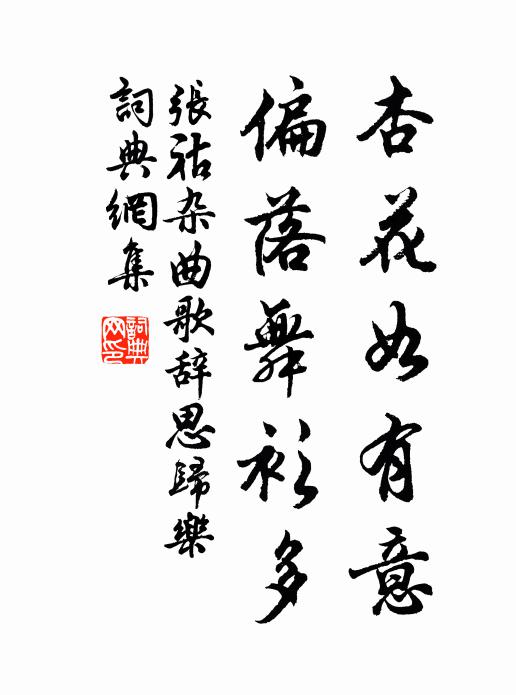 杏花如有意
偏落舞衫多
張祜杂曲歌辞思歸樂
詞典網集
詞典
网印